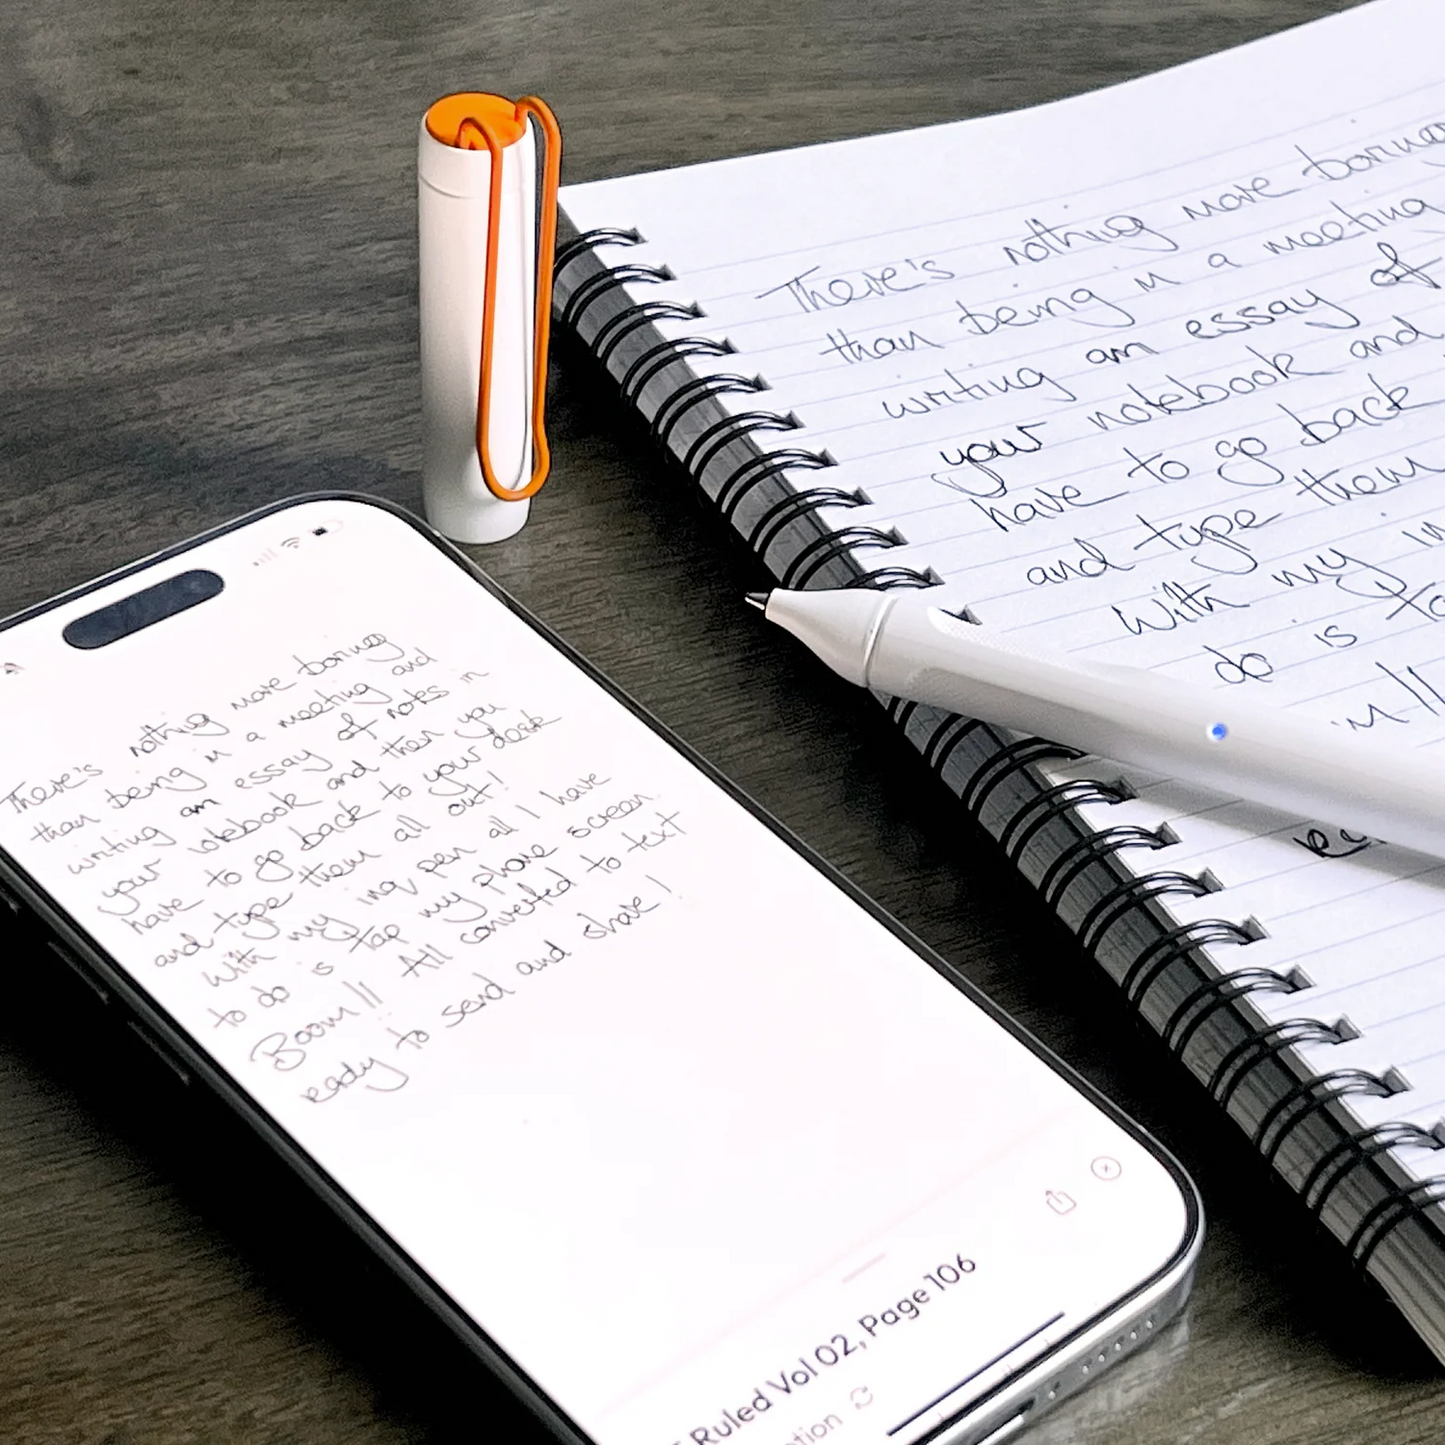 There's nothing more boring
than being in a meeting
writing an essay of
your notebook and
have to go back
and type them
With my in
do is ta
m!!
There's nothing more boring
than being in a meeting and
writing an essay of notes in
your notebook and then you
have to go back to your desk
and type them all out!
With my inqv pen all I have
to do is tap my phone screen.
Boom!! All converted to text
ready to send and share!
Ruled Vol 02, Page 106